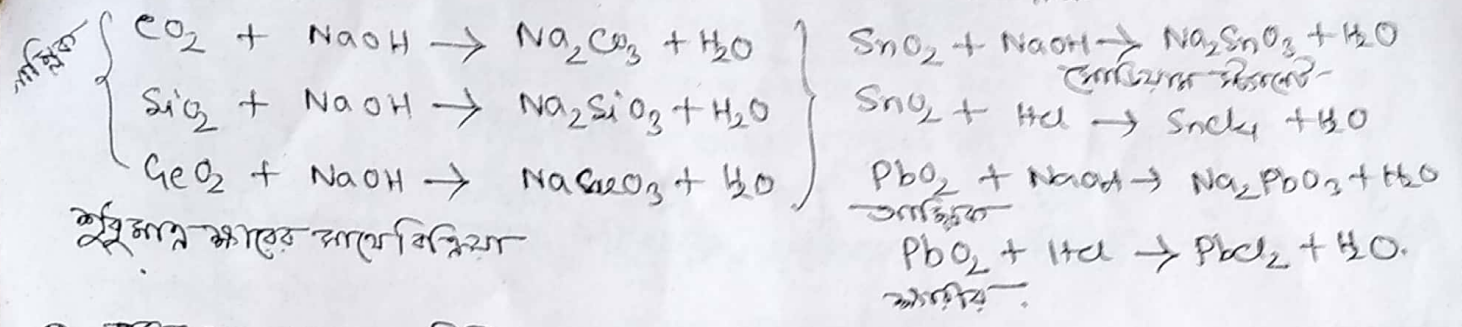 অম্লিক
CO₂ + NaOH → Na₂CO₃ + H₂O
SiO₂ + NaOH → Na₂SiO₃ + H₂O
GeO₂ + NaOH → NaGeO₃ + H₂O
শুধুমাত্র ক্ষারের সাথে বিক্রিয়া
SnO₂ + NaOH → Na₂SnO₃ + H₂O
সোডিয়াম
SnO₂ + HCl → SnCl₄ + H₂O
PbO₂ + NaOH → Na₂PbO₃ + H₂O
PbO₂ + HCl → PbCl₂ + H₂O.
ক্ষারীয়